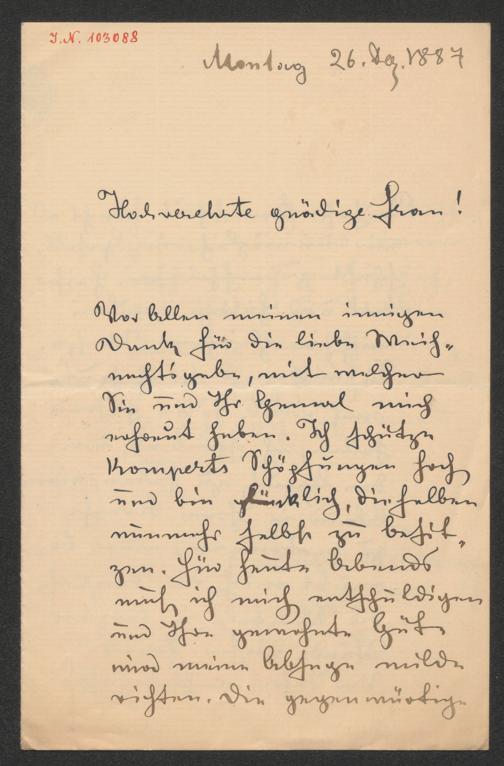 J.N. 103088
Montag 26. Dez. 1887
Hochverehrte gnädige Frau!
Vor Allem meinen innigen
Dank für die liebe Weih-
nachtsgabe, mit welcher
Sie und Ihr Gemal mich
erfreut haben. Ich schätze
Komperts Schöpfungen hoch
und bin glücklich, dieselben
nunmehr selbst zu besit-
zen. Für heute Abends
muß ich mich entschuldigen
und Ihre gewohnte Güte
wird meine Absage milde
richten. Die gegenwärtige